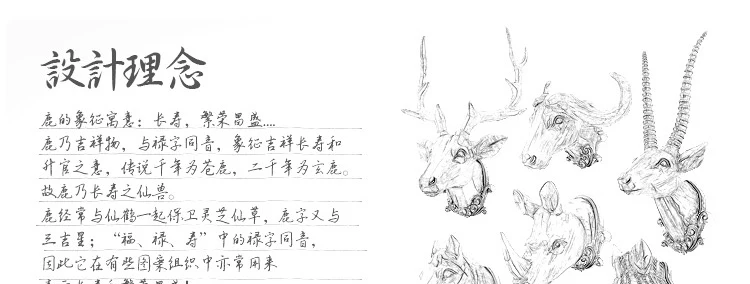 設計理念
鹿的象征寓意：长寿，繁荣昌盛....
鹿乃吉祥物，与禄字同音，象征吉祥长寿和
升官之意，传说千年为苍鹿，二千年为玄鹿。
故鹿乃长寿之仙兽。
鹿经常与仙鹤一起保卫灵芝仙草，鹿字又与
三吉星；“福、禄、寿”中的禄字同音，
因此它在有些图案组织中亦常用来